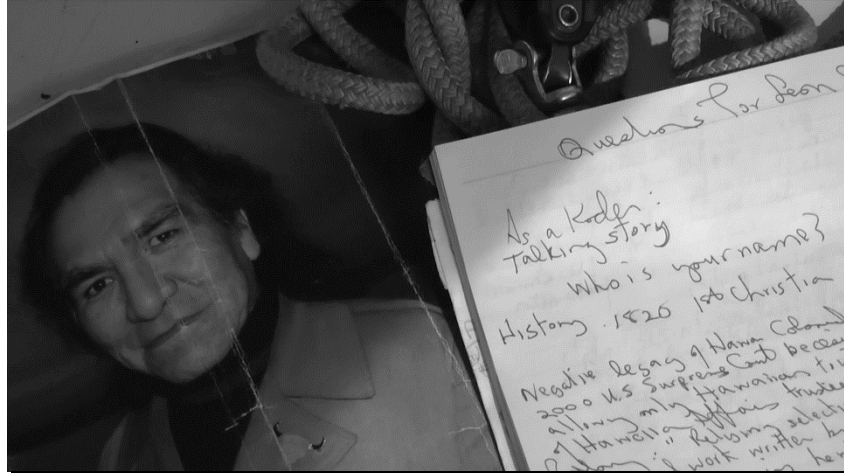 Questions for Leon
As a Koden:
Talking story
Who is your name?
History. 1820 1st Christia
Negative legacy of Hawaii Colonial
2000 U.S Supreme Court because
allowing only Hawaiian
of Hawaiian Affairs trustee
selecti
work written by